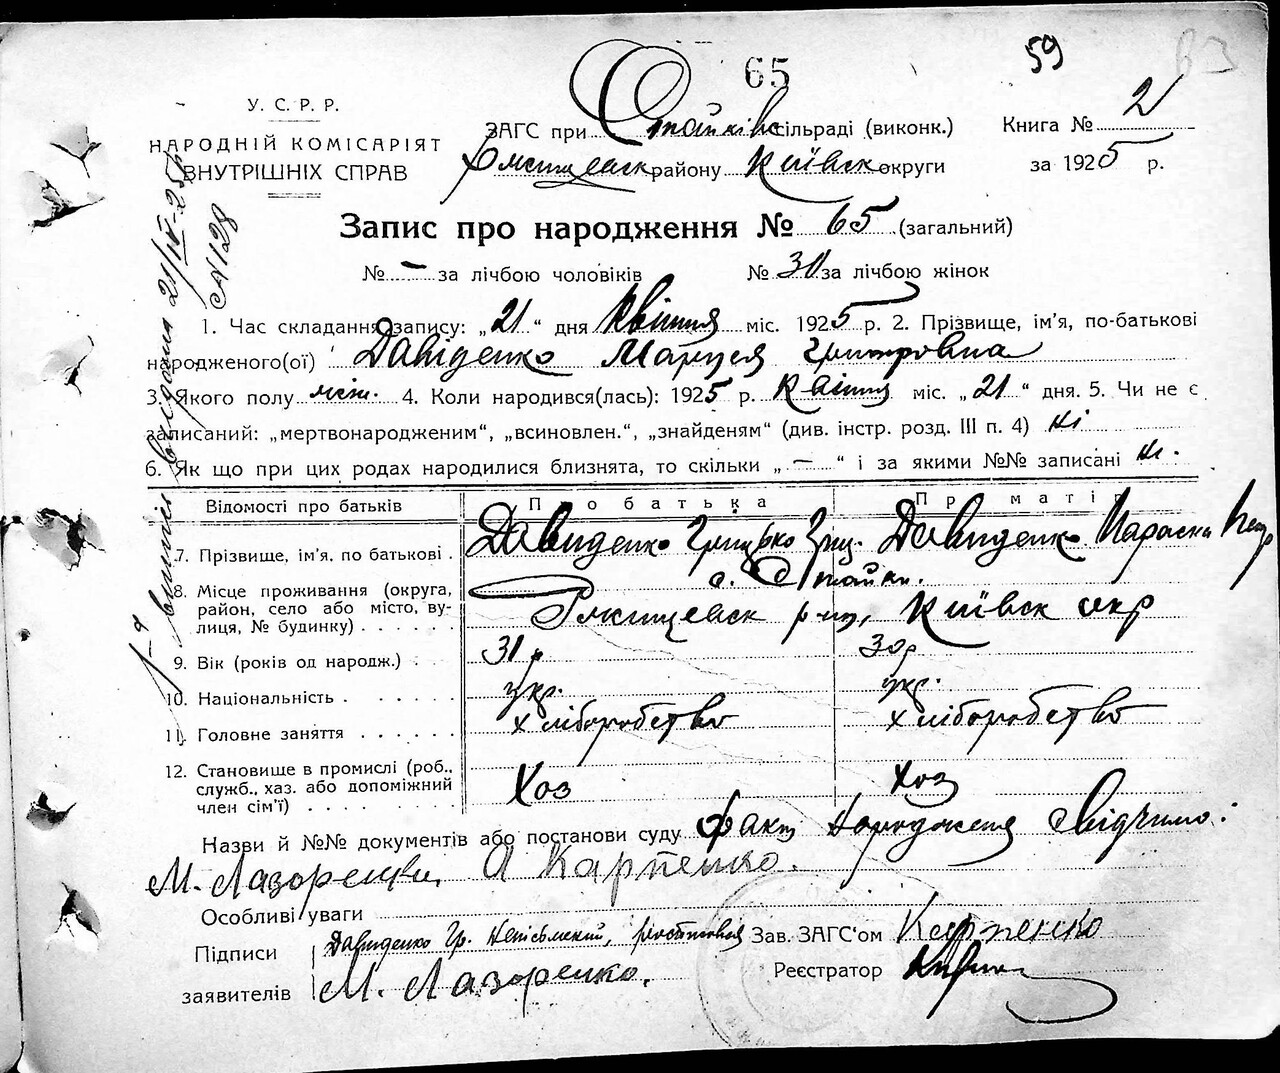 65
59
83
У. С. Р. Р.
НАРОДНІЙ КОМІСАРІЯТ
ВНУТРІШНІХ СПРАВ
ЗАГС при Стайківс сільраді (виконк.)
району Київськ округи
Книга № 2
за 1925 р.
Запис про народження № 65 (загальний)
№ – за лічбою чоловіків № 30 за лічбою жінок
1. Час складання запису: „21“ дня Квітня міс. 1925 р. 2. Прізвище, ім’я, по-батькові
народженого(ої) Давіденко Маруся
3. Якого полу жін. 4. Коли народився(лась): 1925 р. Квітня міс. „21“ дня. 5. Чи не є
записаний: „мертвонародженим“, „всиновлен.“, „знайденям“ (див. інстр. розд. III п. 4) ні
6. Як що при цих родах народилися близнята, то скільки „—“ і за якими №№ записані ні.
Відомості про батьків Про батька Про матір
7. Прізвище, ім’я, по батькові . Давиденко Грицько Давиденко Параска
8. Місце проживання (округа, с. Стайки.
район, село або місто, ву- р-ну, Київськ окр
лиця, № будинку)
9. Вік (років од народж.) 31 р 30 р
10. Національність укр. укр.
11. Головне заняття хліборобство хліборобство
12. Становище в промислі (роб.,
служб., хаз. або допоміжний Хоз Хоз
член сім’ї)
Назви й №№ документів або постанови суду Факт народження свідчимо:
М. Лазоренко, А Карпенко.
Особливі уваги
Підписи Давиденко Гр. Зав. ЗАГС’ом Карпенко
заявителів М. Лазоренко. Реєстратор